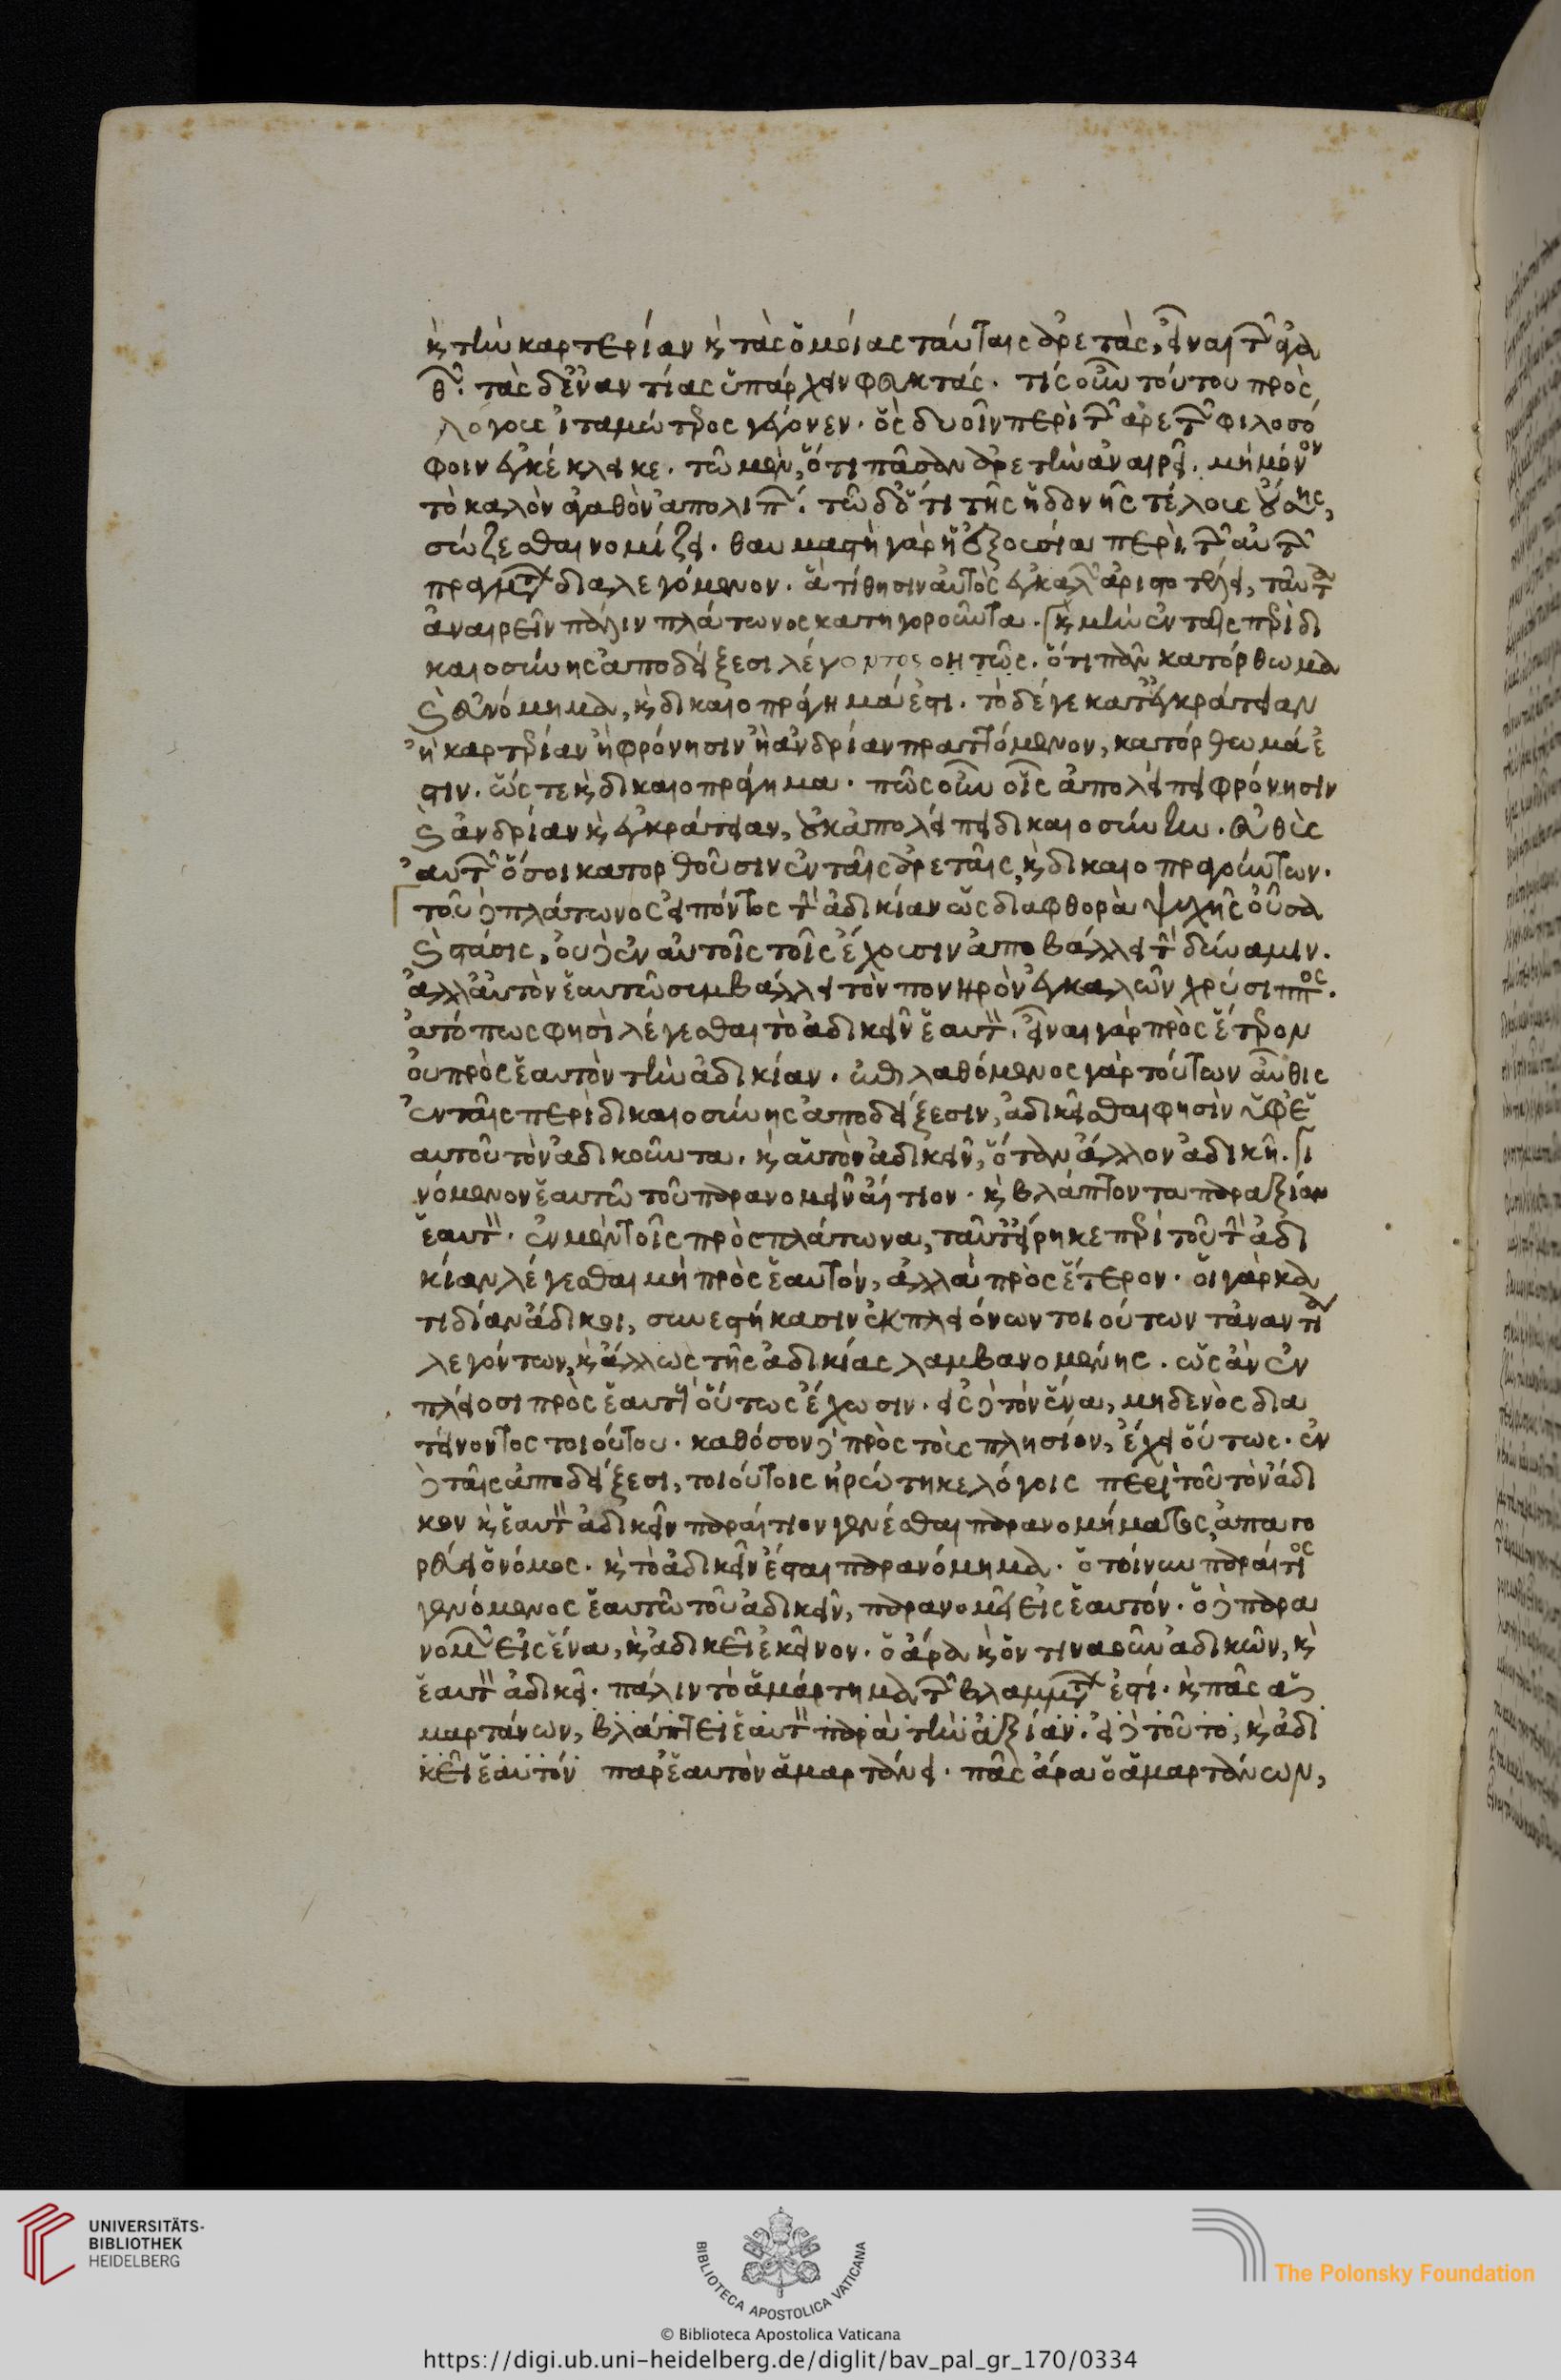 κ̀ τὴν καρτερίαν κ̀ τὰς ὁμοίας ταύταις ἀρετὰς, εἶναι τῶν ἀγα
θῶν· τὰς δ' ἐναντίας ὑπάρχειν φευκτάς. τίς οὖν τούτου πρὸς
λόγους ἰταμώτερος γέγονεν. ὃς δυοῖν περὶ τῶν ἀρετῶν φιλοσό
φοιν ἐγκέκληκε. τῷ μὲν, ὅτι πᾶσαν ἀρετὴν ἀναιρεῖ. μὴ μόνον
τὸ καλὸν ἀγαθὸν ἀπολιπών. τῷ δ' ὅτι τῆς ἡδονῆς τέλους οὔσης,
σώζεσθαι νομίζει. θαυμαστὴ γὰρ ἡ ἐξουσία περὶ τῶν αὐτῶν
πραγμάτων διαλεγόμενον. ἃ τίθησιν αὐτὸς ἐγκαλῶν ἀριστοτέλει, ταῦτα
ἀναιρεῖν πάλιν πλάτωνος κατηγοροῦντα. κ̀ μὴν ἐν ταῖς περὶ δι
καιοσύνης ἀποδείξεσι λέγοντος ῥητῶς. ὅτι πᾶν κατόρθωμα
κ̀ εὐνόμημα, κ̀ δικαιοπράγημά ἐστι. τὸ δέ γε κατ' ἐγκράτειαν
ἢ καρτερίαν ἢ φρόνησιν ἢ ἀνδρίαν πραττόμενον, κατόρθωμά ἐ
στιν. ὥς τε κ̀ δικαιοπράγημα. πῶς οὖν οἷς ἀπολείπει φρόνησιν
κ̀ ἀνδρίαν κ̀ ἐγκράτειαν, οὐκ ἀπολείπει δικαιοσύνην. εὐθὺς
αὐτῶν ὅσοι κατορθοῦσιν ἐν ταῖς ἀρεταῖς, κ̀ δικαιοπραγούντων.
τοῦ δὲ πλάτωνος εἰπόντος τὴν ἀδικίαν ὡς διαφθορὰ ψυχῆς οὖσα
κ̀ στάσις, οὐδ' ἐν αὐτοῖς τοῖς ἔχουσιν ἀποβάλλει τὴν δύναμιν.
ἀλλ' αὐτὸν ἑαυτῷ συμβάλλει τὸν πονηρὸν ἐγκαλῶν χρύσιππος.
ἀτόπως φησὶ λέγεσθαι τὸ ἀδικεῖν ἑαυτὸν. εἶναι γὰρ πρὸς ἕτερον
οὐ πρὸς ἑαυτὸν τὴν ἀδικίαν. ἐπιλαθόμενος γὰρ τούτων αὖθις
ἐν ταῖς περὶ δικαιοσύνης ἀποδείξεσιν, ἀδικεῖσθαι φησὶν ὑφ' ἑ
αυτοῦ τὸν ἀδικοῦντα. κ̀ αὑτὸν ἀδικεῖν, ὅταν ἄλλον ἀδικῇ. γι
νόμενον ἑαυτῷ τοῦ παρανομεῖν αἴτιον. κ̀ βλάπτοντα παραξίαν
ἑαυτὸν. ἐν μὲν τοῖς πρὸς πλάτωνα, ταῦτ' εἴρηκε περὶ τοῦ τὴν ἀδι
κίαν λέγεσθαι μὴ πρὸς ἑαυτόν, ἀλλὰ πρὸς ἕτερον. οἱ γὰρ κα
τιδίαν ἄδικοι, συνεστήκασιν ἐκ πλειόνων τοιούτων τἀναντία
λεγόντων, κ̀ ἄλλως τῆς ἀδικίας λαμβανομένης. ὡς ἂν ἐν
πλείοσι πρὸς ἑαυτοὺς οὕτως ἔχωσιν. εἰς δὲ τὸν ἕνα, μηδενὸς δια
τείνοντος τοιούτου. καθόσον δὲ πρὸς τοὺς πλησίον, ἔχει οὕτως. ἐν
δὲ ταῖς ἀποδείξεσι, τοιούτοις ἠρώτηκε λόγοις περὶ τοῦ τὸν ἄδι
κον κ̀ ἑαυτὸν ἀδικεῖν παραίτιον γενέσθαι παρανομήματος, ἀπαγο
ρεύει ὁ νόμος. κ̀ τὸ ἀδικεῖν ἔσται παρανόμημα. ὁ τοίνυν παραίτιος
γενόμενος ἑαυτῷ τοῦ ἀδικεῖν, παρανομεῖ εἰς ἑαυτόν. ὁ δὲ παρα
νομῶν εἰς ἕνα, κ̀ ἀδικεῖ ἐκεῖνον. ὁ ἄρα κ̀ ὅντινα οὖν ἀδικῶν, κ̀
ἑαυτὸν ἀδικεῖ. πάλιν τὸ ἁμάρτημα τῶν βλαμμάτων ἐστί. κ̀ πᾶς δὲ ἁ
μαρτάνων, βλάπτει ἑαυτὸν παρὰ τὴν ἀξίαν. εἰ δὲ τοῦτο, κ̀ ἀδι
κεῖ ἑαυτόν παρ' ἑαυτὸν ἁμαρτάνει. πᾶς ἄρα ὁ ἁμαρτάνων,
UNIVERSITÄTS-
BIBLIOTHEK
HEIDELBERG
BIBLIOTECA APOSTOLICA VATICANA
The Polonsky Foundation
© Biblioteca Apostolica Vaticana
https://digi.ub.uni-heidelberg.de/diglit/bav_pal_gr_170/0334